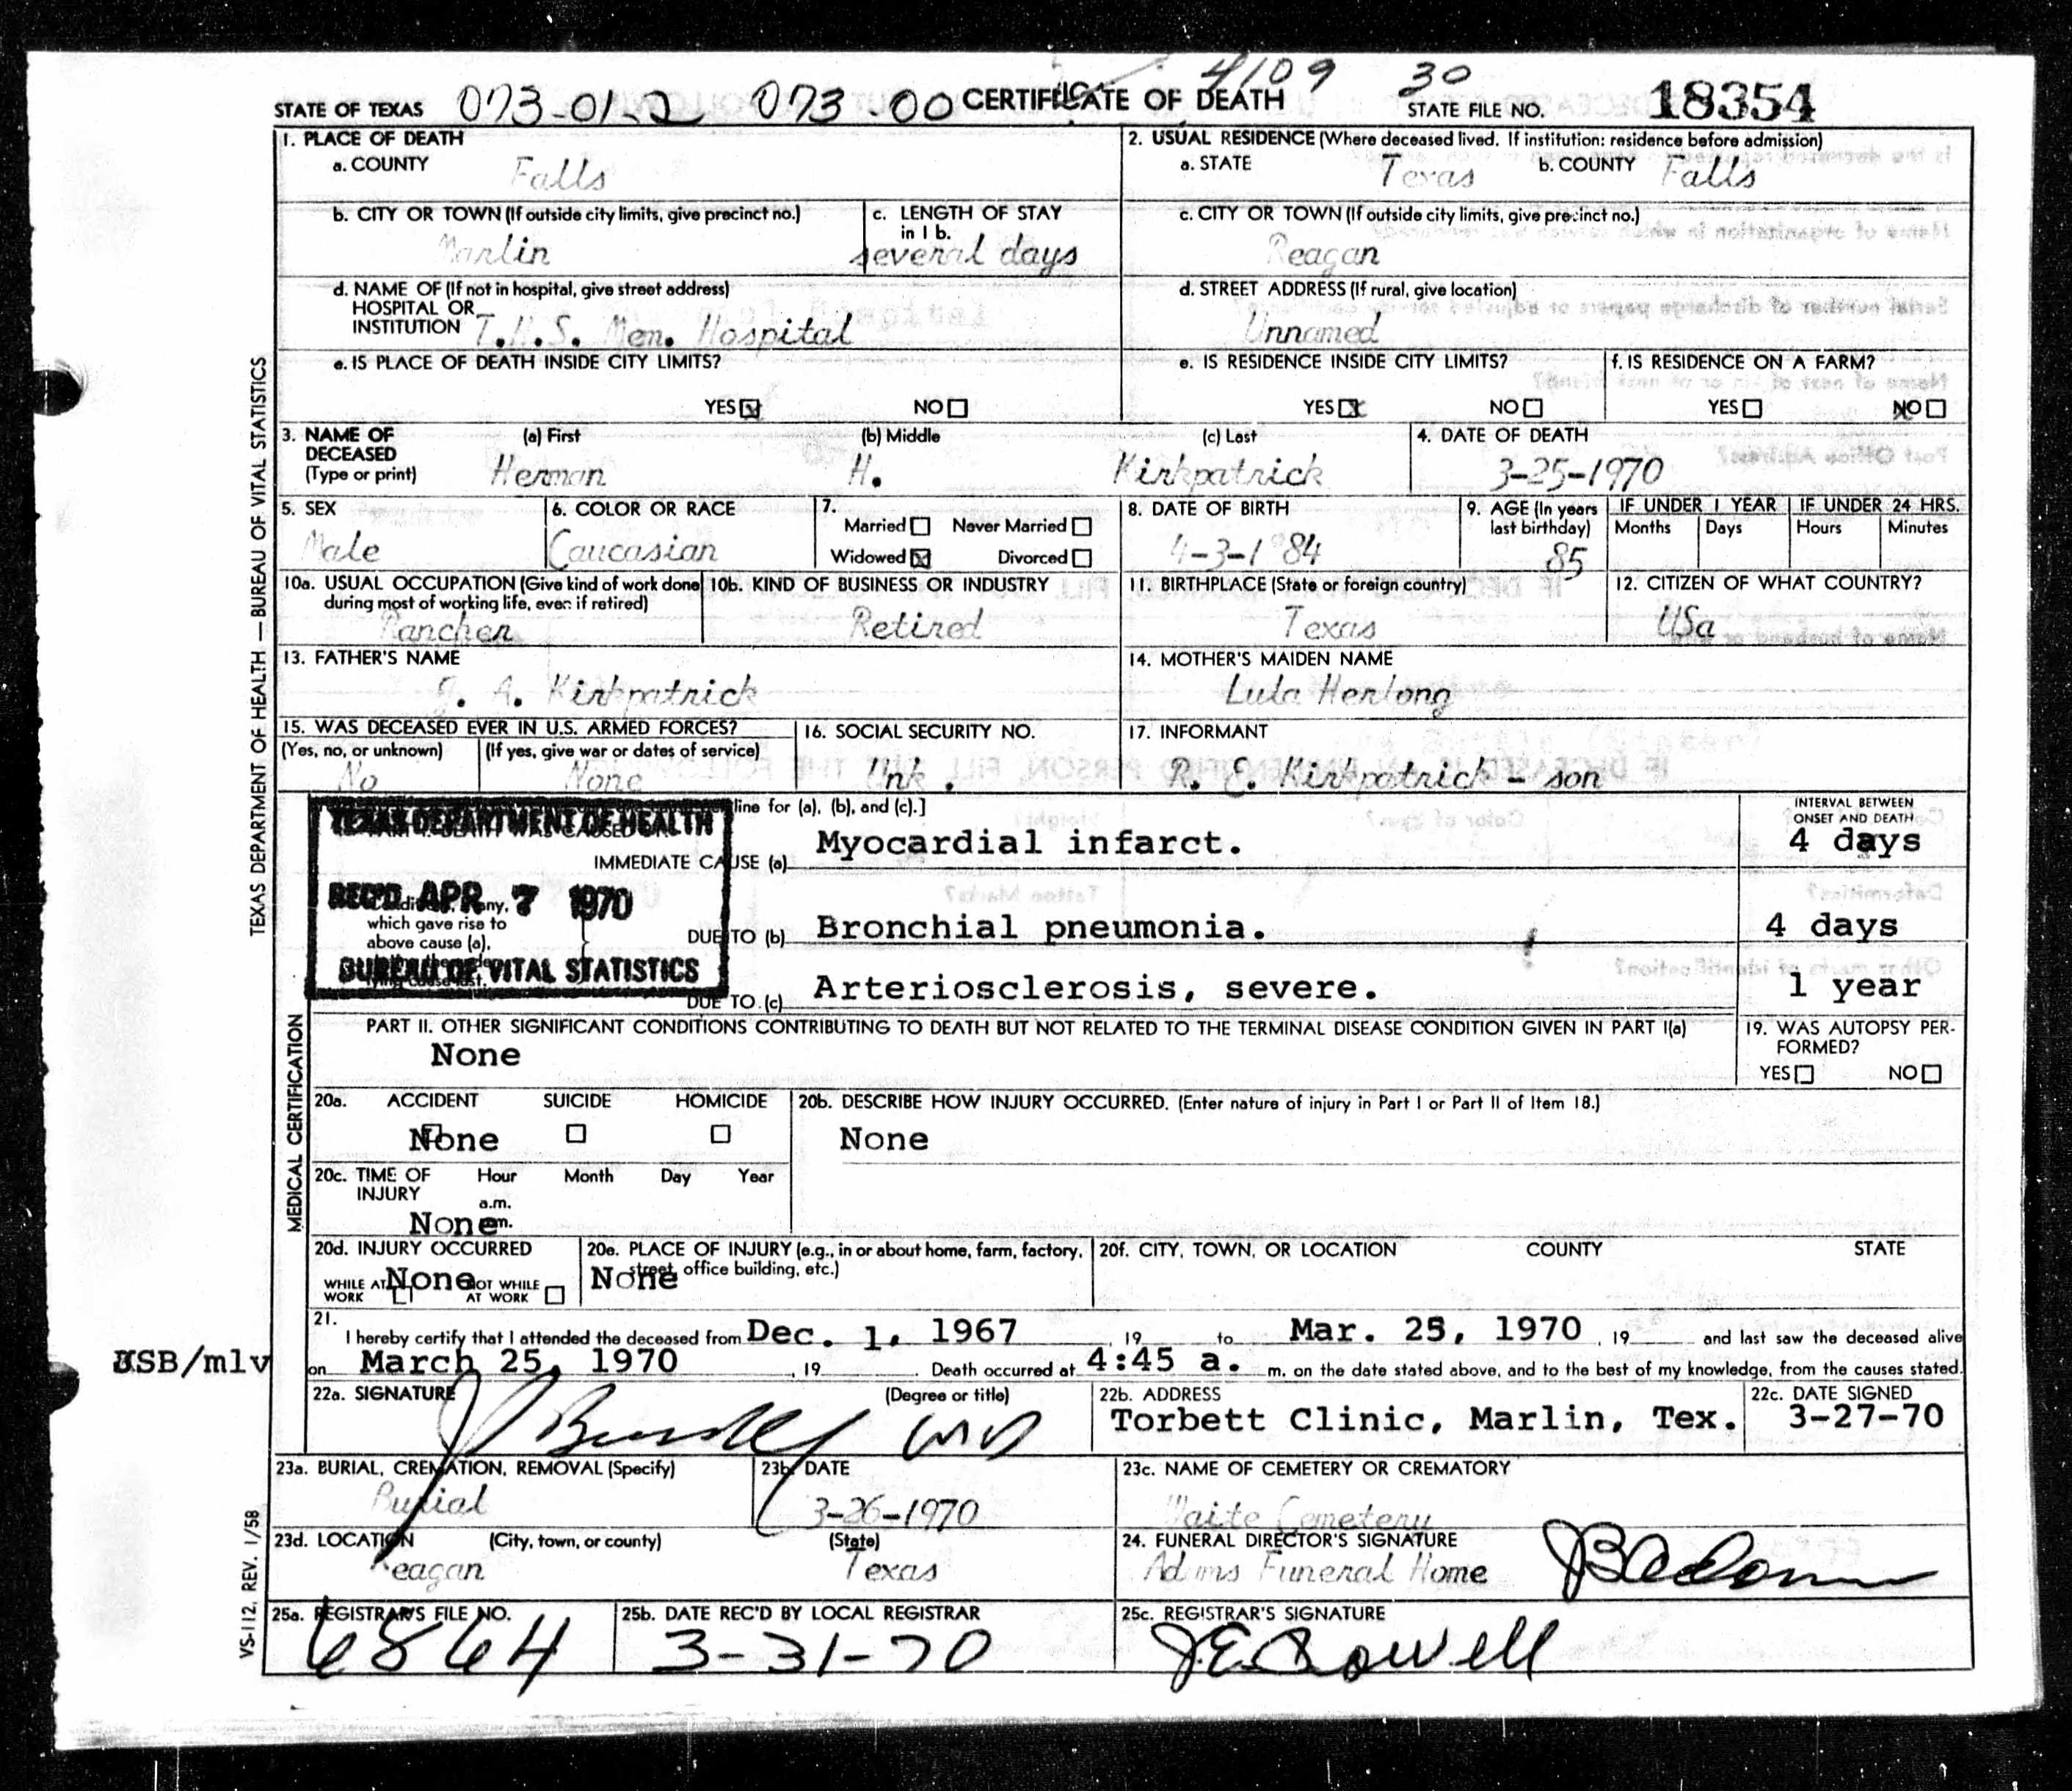 4109 30
STATE OF TEXAS 073-01-2 073-00 CERTIFICATE OF DEATH STATE FILE NO. 18354
1. PLACE OF DEATH
a. COUNTY Falls
2. USUAL RESIDENCE (Where deceased lived. If institution: residence before admission)
a. STATE Texas b. COUNTY Falls
b. CITY OR TOWN (If outside city limits, give precinct no.)
Marlin
c. LENGTH OF STAY
in 1 b.
several days
c. CITY OR TOWN (If outside city limits, give precinct no.)
Reagan
d. NAME OF (If not in hospital, give street address)
HOSPITAL OR
INSTITUTION T.H.S. Mem. Hospital
d. STREET ADDRESS (If rural, give location)
Unnamed
e. IS PLACE OF DEATH INSIDE CITY LIMITS?
YES NO
e. IS RESIDENCE INSIDE CITY LIMITS?
YES NO
f. IS RESIDENCE ON A FARM?
YES NO
3. NAME OF
DECEASED
(Type or print)
(a) First (b) Middle (c) Last
Herman H. Kirkpatrick
4. DATE OF DEATH
3-25-1970
5. SEX
Male
6. COLOR OR RACE
Caucasian
7.
Married Never Married
Widowed Divorced
8. DATE OF BIRTH
4-3-1 84
9. AGE (In years
last birthday)
85
IF UNDER 1 YEAR
Months Days
IF UNDER 24 HRS.
Hours Minutes
10a. USUAL OCCUPATION (Give kind of work done
during most of working life, even if retired)
Rancher
10b. KIND OF BUSINESS OR INDUSTRY
Retired
11. BIRTHPLACE (State or foreign country)
Texas
12. CITIZEN OF WHAT COUNTRY?
USa
13. FATHER'S NAME
A. Kirkpatrick
14. MOTHER'S MAIDEN NAME
Lula Herlong
15. WAS DECEASED EVER IN U.S. ARMED FORCES?
(Yes, no, or unknown) (If yes, give war or dates of service)
No None
16. SOCIAL SECURITY NO.
Unk.
17. INFORMANT
R. E. Kirkpatrick - son
line for (a), (b), and (c).]
TEXAS DEPARTMENT OF HEALTH
REC'D APR 7 1970
BUREAU OF VITAL STATISTICS
IMMEDIATE CAUSE (a) Myocardial infarct.
which gave rise to
above cause (a),
DUE TO (b) Bronchial pneumonia.
DUE TO (c) Arteriosclerosis, severe.
INTERVAL BETWEEN
ONSET AND DEATH
4 days
4 days
1 year
PART II. OTHER SIGNIFICANT CONDITIONS CONTRIBUTING TO DEATH BUT NOT RELATED TO THE TERMINAL DISEASE CONDITION GIVEN IN PART I(a)
None
19. WAS AUTOPSY PER-
FORMED?
YES NO
20a. ACCIDENT SUICIDE HOMICIDE
None
20b. DESCRIBE HOW INJURY OCCURRED. (Enter nature of injury in Part I or Part II of Item 18.)
None
20c. TIME OF
INJURY
Hour Month Day Year
a.m.
None
20d. INJURY OCCURRED
WHILE AT
WORK
None
NOT WHILE
AT WORK
20e. PLACE OF INJURY (e.g., in or about home, farm, factory,
street, office building, etc.)
None
20f. CITY, TOWN, OR LOCATION COUNTY STATE
21.
I hereby certify that I attended the deceased from Dec. 1, 1967, 19 to Mar. 25, 1970, 19 and last saw the deceased alive
on March 25, 1970, 19. Death occurred at 4:45 a. m. on the date stated above, and to the best of my knowledge, from the causes stated.
22a. SIGNATURE (Degree or title)
MD
22b. ADDRESS
Torbett Clinic, Marlin, Tex.
22c. DATE SIGNED
3-27-70
23a. BURIAL, CREMATION, REMOVAL (Specify)
Burial
23b. DATE
3-26-1970
23c. NAME OF CEMETERY OR CREMATORY
Waite Cemetery
23d. LOCATION (City, town, or county) (State)
Reagan Texas
24. FUNERAL DIRECTOR'S SIGNATURE
Adams Funeral Home
25a. REGISTRAR'S FILE NO.
6864
25b. DATE REC'D BY LOCAL REGISTRAR
3-31-70
25c. REGISTRAR'S SIGNATURE
TEXAS DEPARTMENT OF HEALTH — BUREAU OF VITAL STATISTICS
MEDICAL CERTIFICATION
VS-112, REV. 1/58